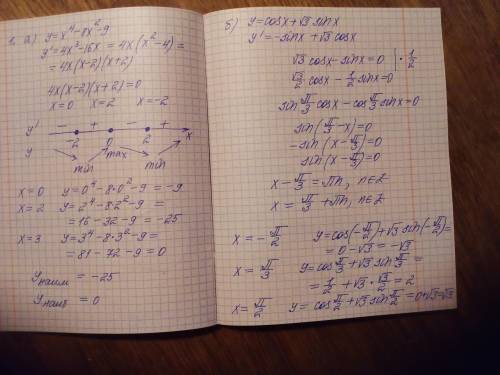 1. a) y=x⁴-8x²-9
y'=4x³-16x = 4x(x²-4)=
=4x(x-2)(x+2)
4x(x-2)(x+2)=0
x=0 x=2 x=-2
y' - + - +
-2 0 2 x
y min max min
x=0 y=0⁴-8·0²-9 = -9
x=2 y=2⁴-8·2²-9 =
=16-32-9 = -25
x=3 y=3⁴-8·3²-9=
=81-72-9 = 0
yнаим = -25
yнаиб = 0
б) y=cosx+√3 sinx
y'=-sinx+√3 cosx
√3 cosx-sinx=0 | · 1/2
√3/2 cosx - 1/2 sinx=0
sin π/3 cosx - cos π/3 sinx=0
sin(π/3 -x)=0
-sin(x-π/3)=0
sin(x-π/3)=0
x-π/3=πn, n∈Z
x= π/3 +πn, n∈Z
x=-π/2 y=cos(-π/2)+√3 sin(-π/2)=
= 0-√3=-√3
x=π/3 y=cos π/3+√3 sin π/3 =
= 1/2 +√3 · √3/2 = 2
x=π/2 y=cos π/2+√3 sin π/2 = 0+√3=√3